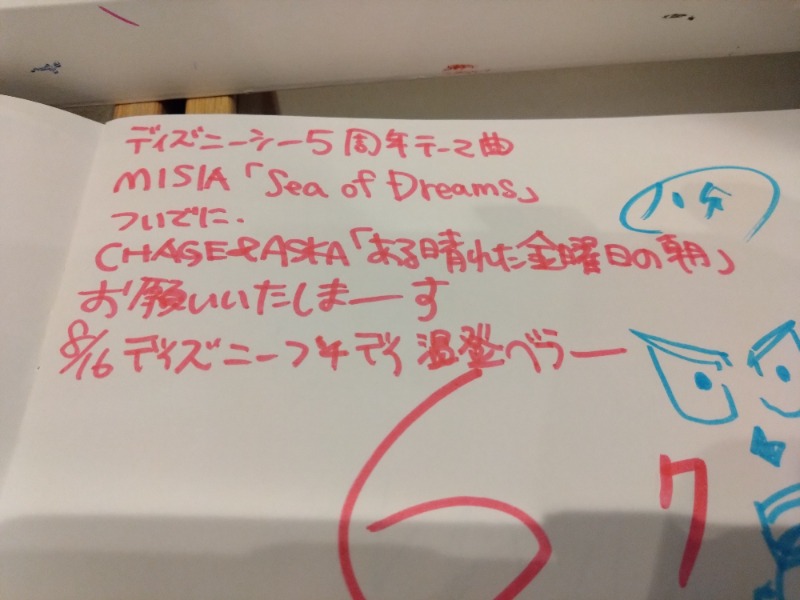 ディズニーシー5周年テーマ曲
MISIA「Sea of Dreams」
ついでに.
CHAGE&ASKA「ある晴れた金曜日の朝」
お願いいたしまーす
8/16 ディズニー
6 7